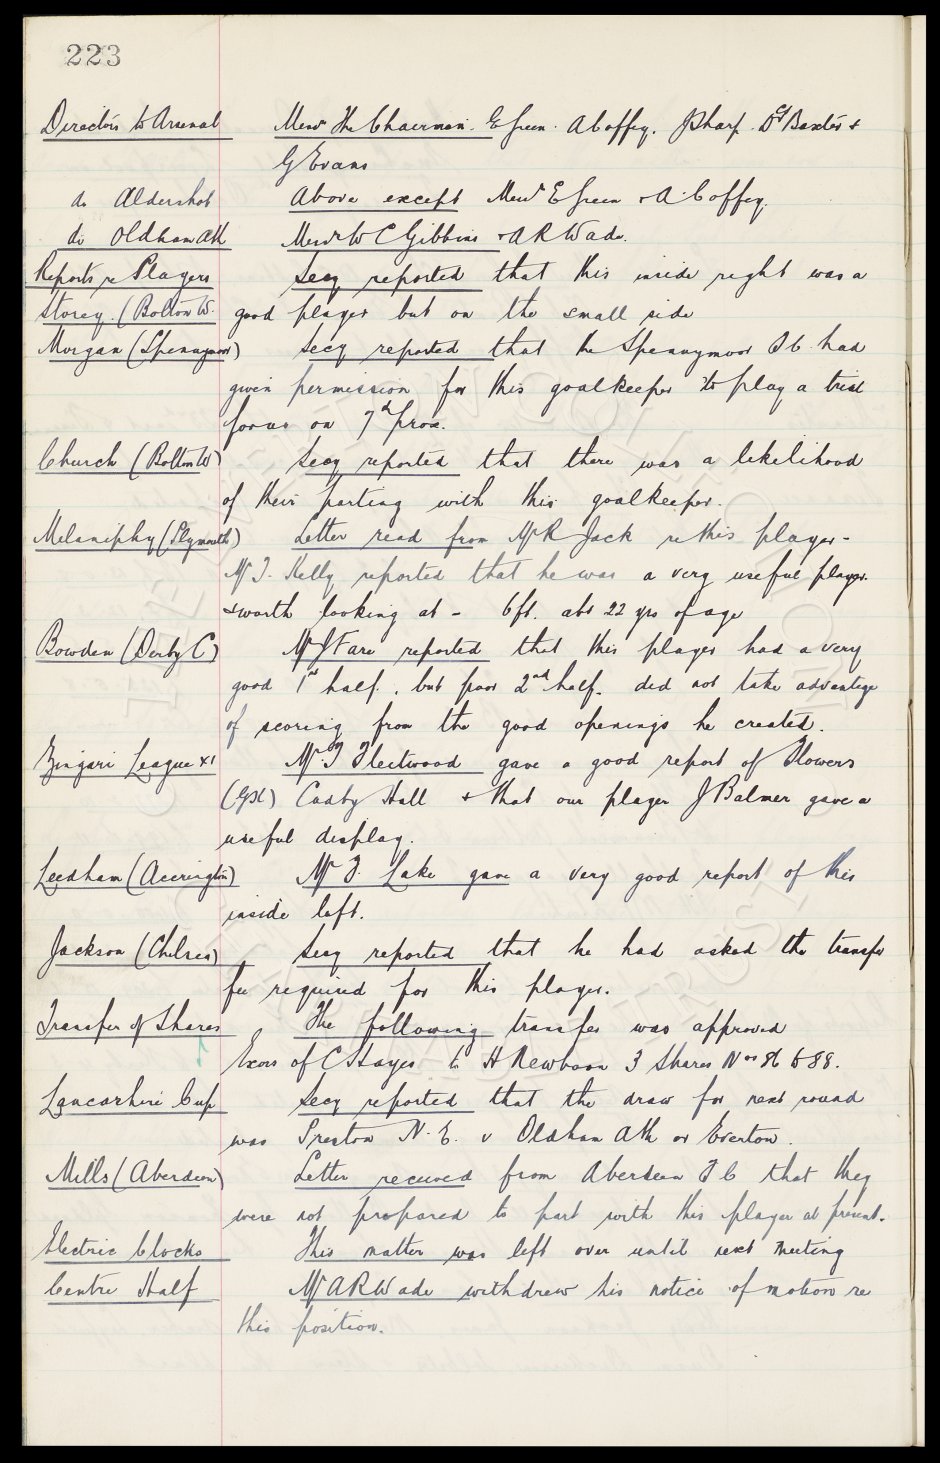 223
Directors to Arsenal Messrs The Chairman. E Green. A Coffey. J Sharp. Dr Baxter &
G Evans
do Aldershot Above except Messrs E Green & A Coffey.
do Oldham Ath Messrs W C Gibbins & A R Wade.
Reports re Players Secy reported that this inside right was a
Storey. (Bolton W. good player but on the small side
Morgan (Spennymoor) Secy reported that the Spennymoor F C had
given permission for this goalkeeper to play a trial
for us on 7th prox.
Church (Bolton W) Secy reported that there was a likelihood
of their parting with this goalkeeper.
Melaniphy (Plymouth) Letter read from Mr R Jack re this player -
Mr T. Kelly reported that he was a very useful player
& worth looking at - 6ft. abt 22 yrs of age
Bowden (Derby C) Mr J Fare reported that this player had a very
good 1st half, but poor 2nd half. did not take advantage
of scoring from the good openings he created.
Zingari League XI Mr T Fleetwood gave a good report of Flowers
(Gl) Cadby Hall & that our player J Balmer gave a
useful display.
Leedham (Accrington) Mr T. Lake gave a very good report of this
inside left.
Jackson (Chelsea) Secy reported that he had asked the transfer
fee required for this player.
Transfer of Shares The following transfer was approved
Exors of C Stayes to H Rewbourn 3 Shares Nos 86 to 88.
Lancashire Cup Secy reported that the draw for next round
was Preston N. E. v Oldham Ath or Everton.
Mills (Aberdeen) Letter received from Aberdeen F C that they
were not prepared to part with this player at present.
Electric Clocks This matter was left over until next meeting
Centre Half Mr A R Wade withdrew his notice of motion re
this position.